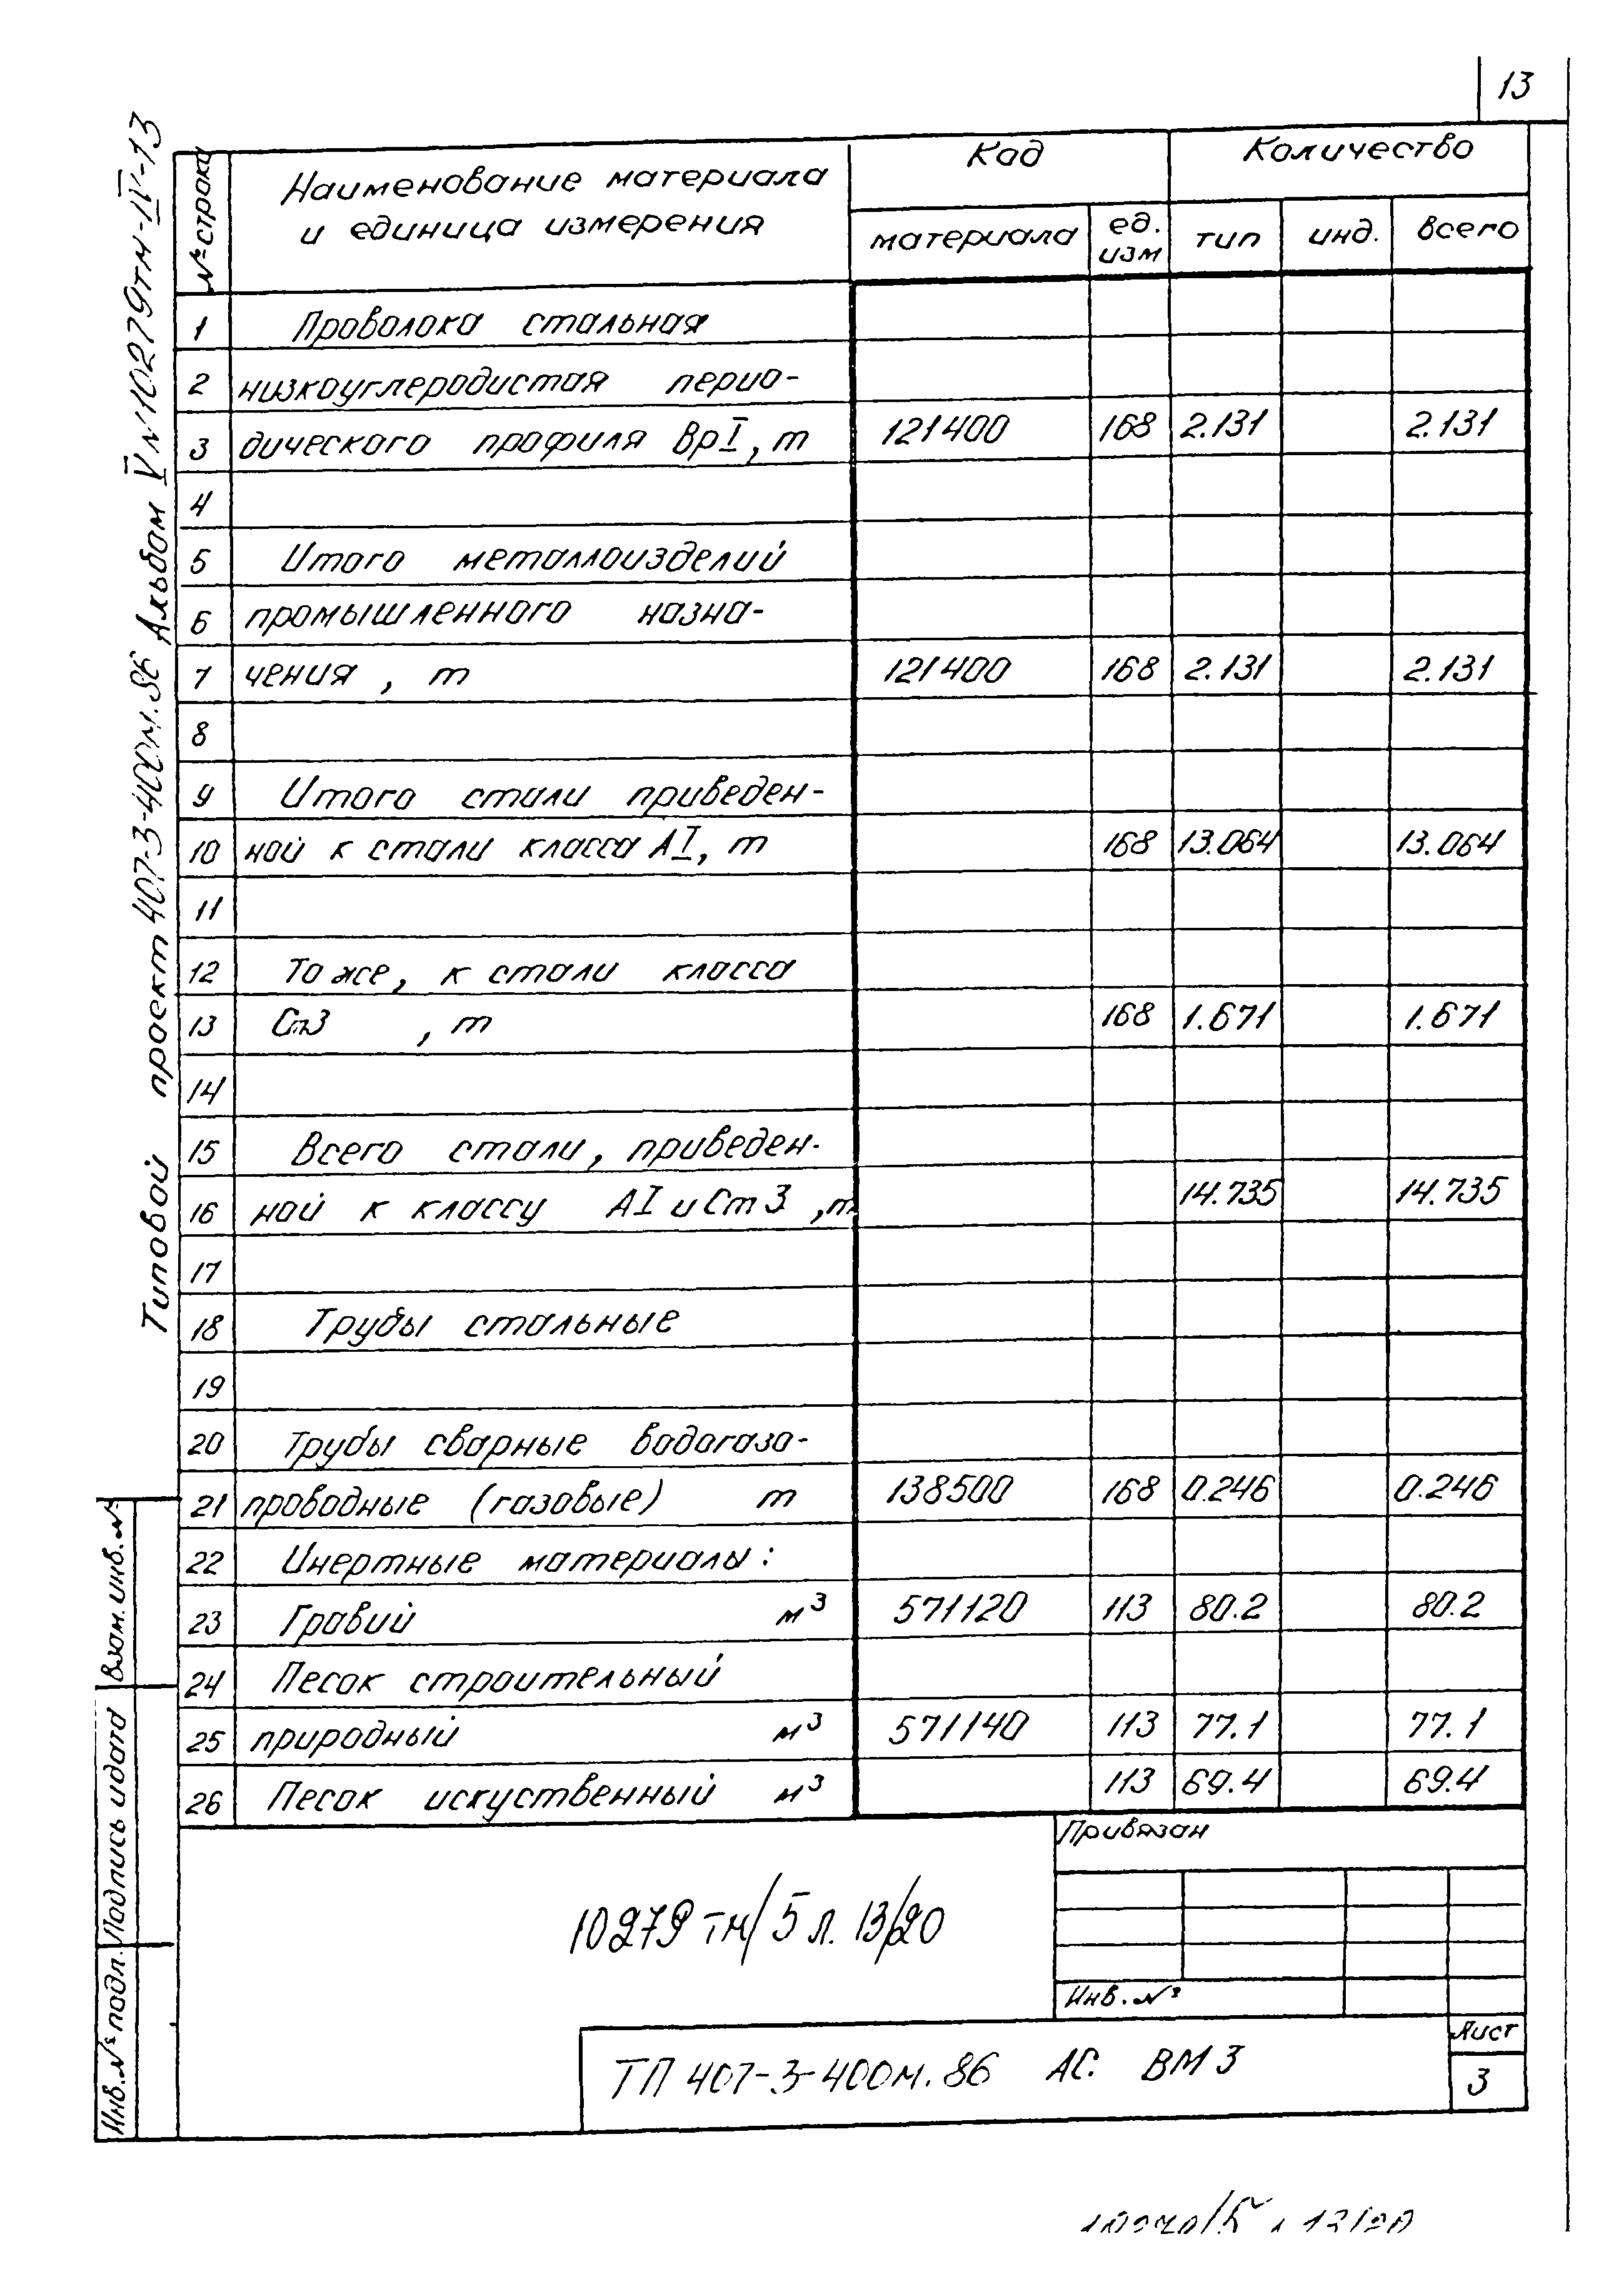 13
Типовой проект 407-3-400м.86 Альбом V №10279тм-IV-13
№ строки
Наименование материала
и единица измерения
Код
Количество
материала
ед.
изм
тип
инд.
всего
1 Проволока стальная
2 низкоуглеродистая перио-
3 дического профиля ВрI, т 121400 168 2.131 2.131
4
5 Итого металлоизделий
6 промышленного назна-
7 чения, т 121400 168 2.131 2.131
8
9 Итого стали приведен-
10 ной к стали класса АI, т 168 13.064 13.064
11
12 То же, к стали класса
13 Ст3 , т 168 1.671 1.671
14
15 Всего стали, приведен-
16 ной к классу АI и Ст 3 , т 14.735 14.735
17
18 Трубы стальные
19
20 Трубы сварные водогазо-
21 проводные (газовые) т 138500 168 0.246 0.246
22 Инертные материалы:
23 Гравий м³ 571120 113 80.2 80.2
24 Песок строительный
25 природный м³ 571140 113 77.1 77.1
26 Песок искуственный м³ 113 69.4 69.4
Взам. инв. №
Подпись и дата
Инв. № подл.
Привязан
10279тм/5 л. 13/20
Инв. №
ТП 407-3-400м.86 АС. ВМ 3
Лист
3